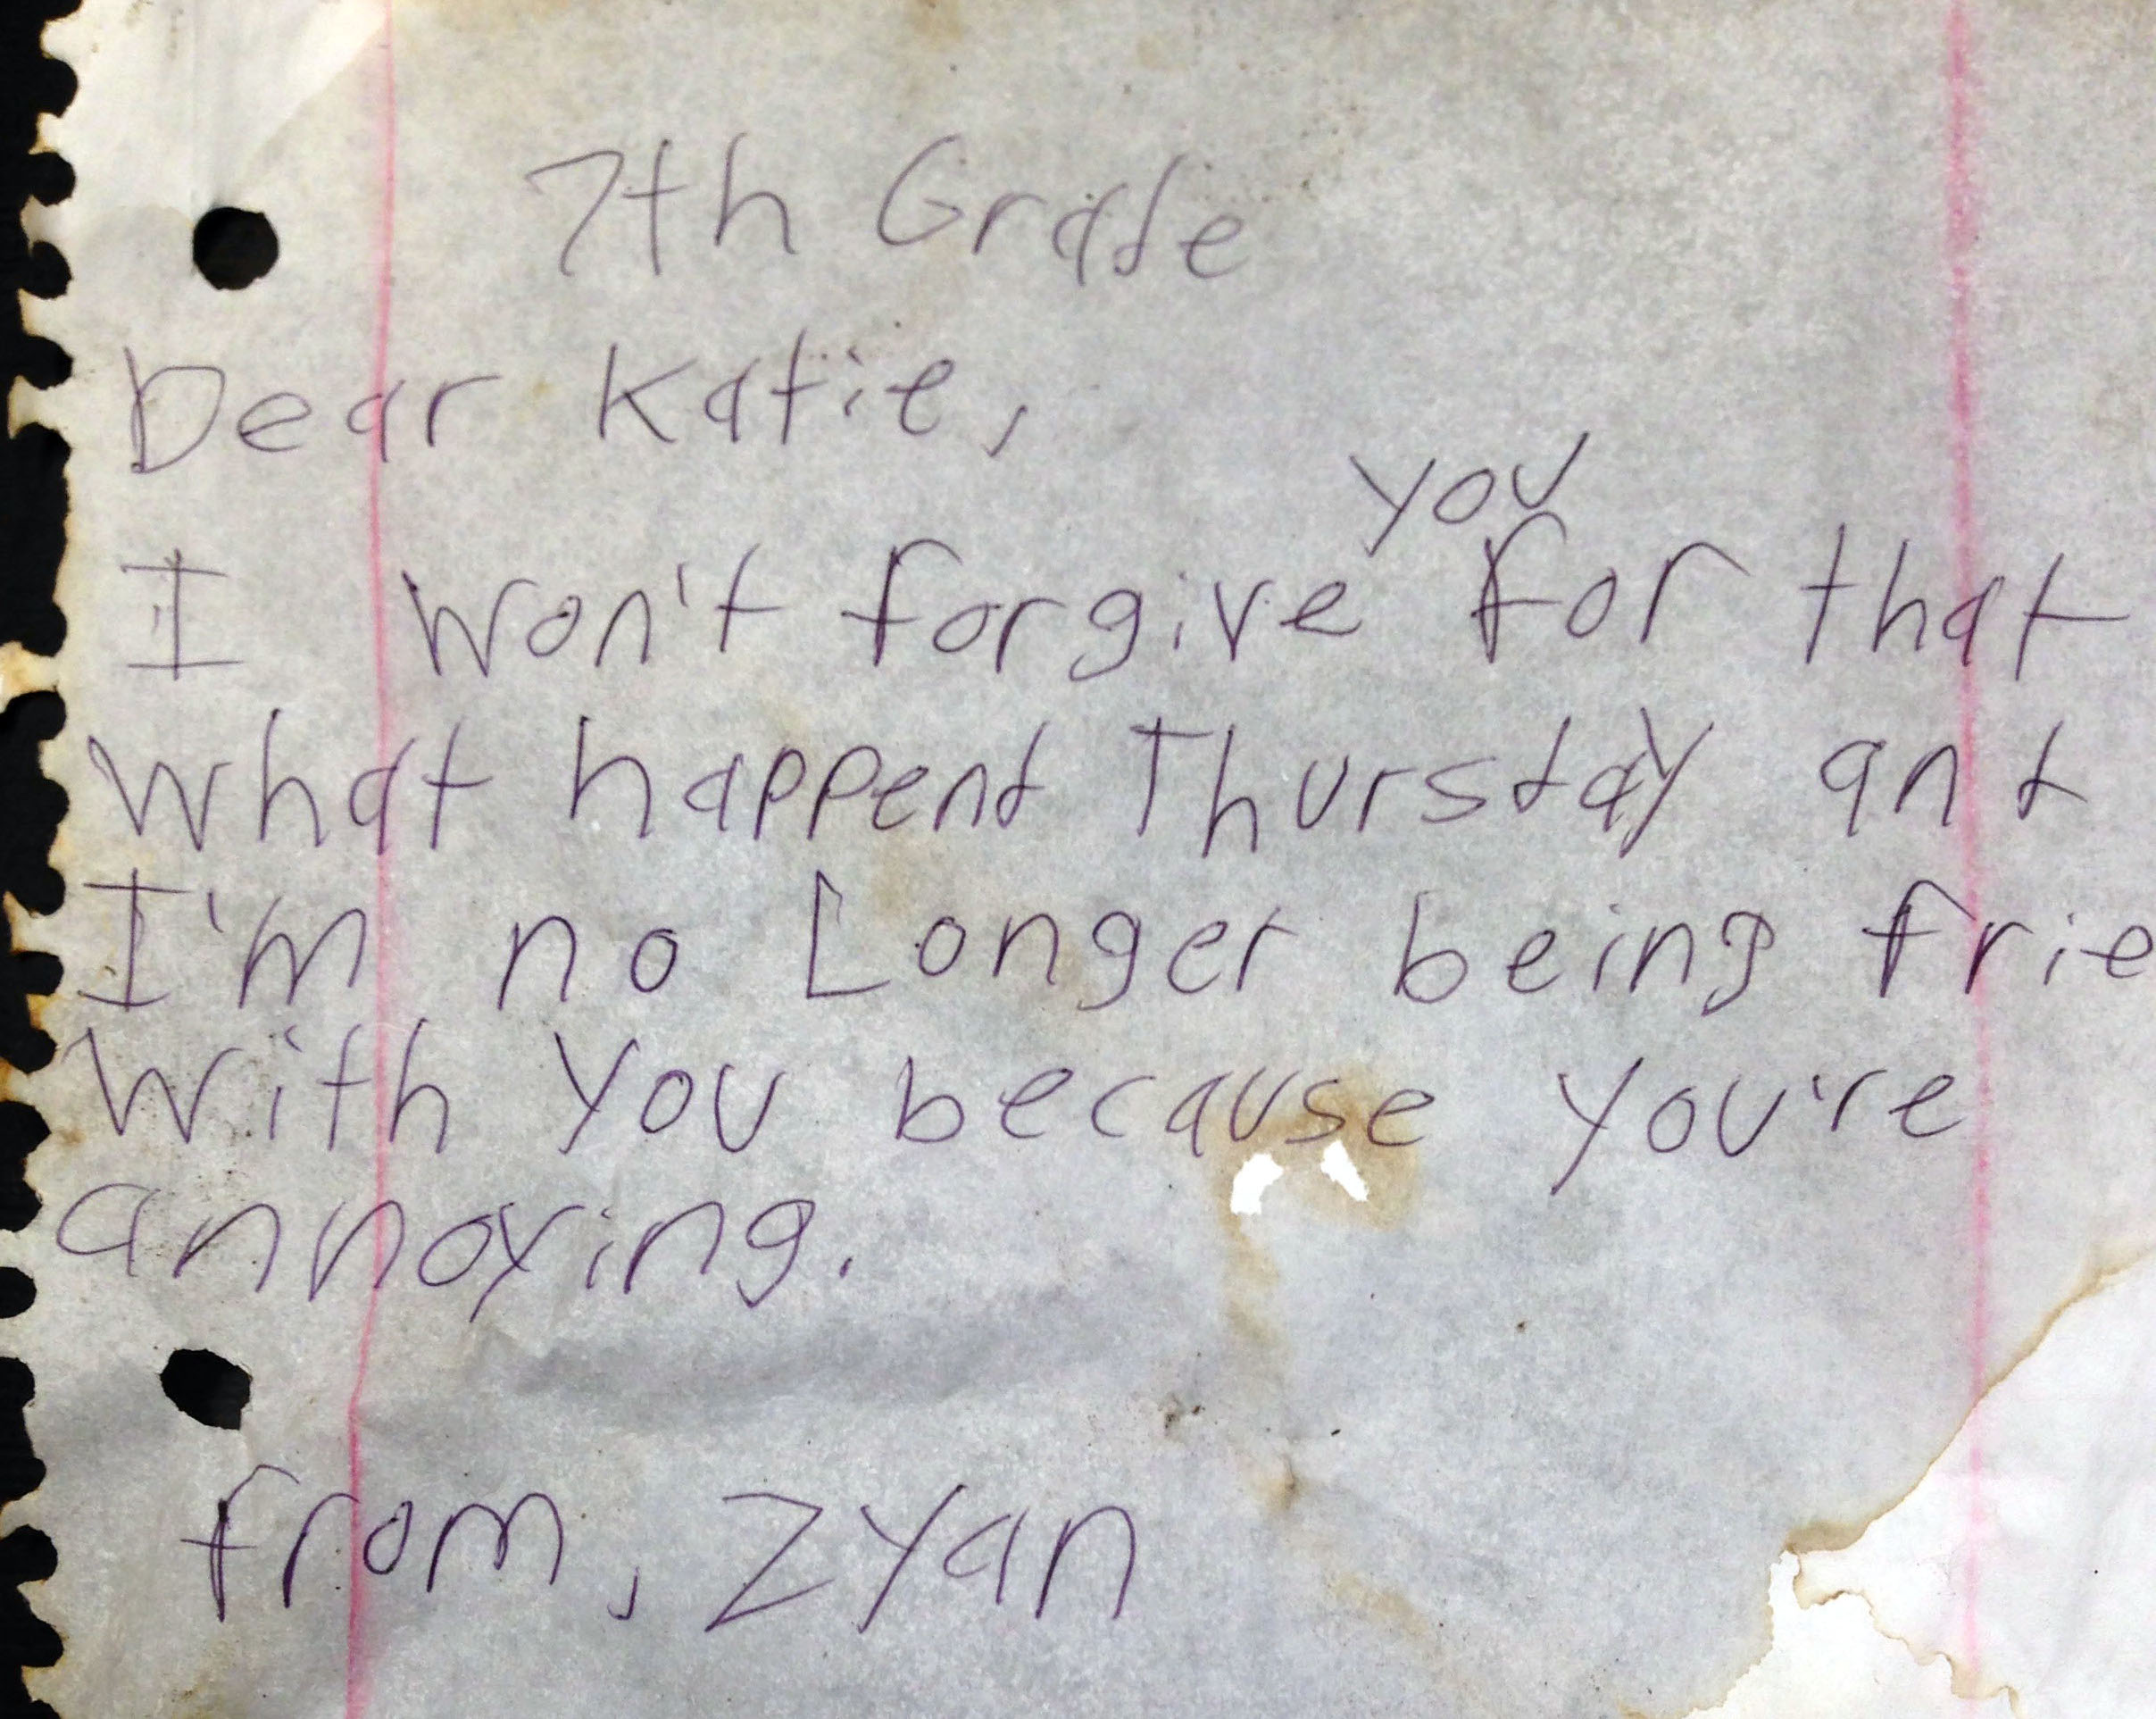 7th Grade
Dear Katie,
you
I won't forgive for that
what happend Thursday and
I'm no Longer being frie
with you because you're
annoying.
from, Zyan